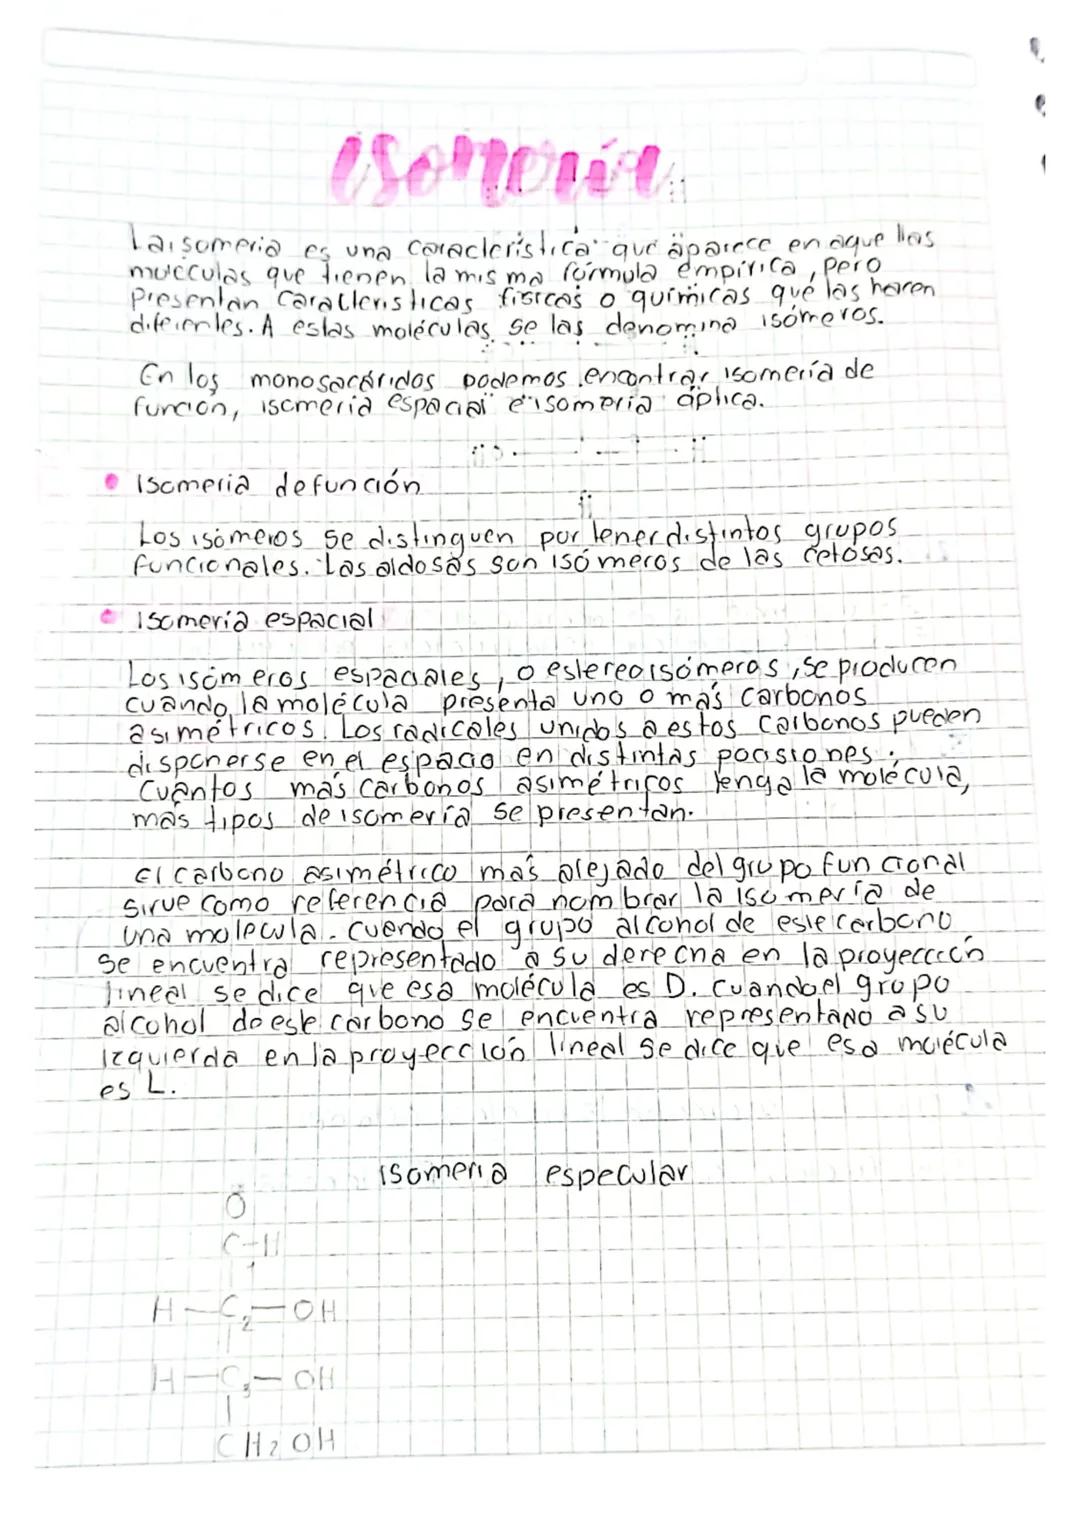 isomería
La isomeria es una característica que aparece en aquellas
moleculas que tienen la misma fórmula empírica, pero
presentan caracteristicas físicas o químicas que las hacen
diferentes. A estas moléculas se las denomina isómeros.
En los monosacáridos podemos encontrar isomería de
función, isomería espacial e isomería óptica.
Isomeria de función
Los isómeros se distinguen por tener distintos grupos
funcionales. Las aldosas son isómeros de las cetosas.
Isomería espacial
Los isómeros espaciales, o estereoisómeros, se producen
cuando la molécula presenta uno o más carbonos
asimétricos. Los radicales unidos a estos carbonos pueden
disponerse en el espacio en distintas posiones.
Cuantos más carbonos asimétricos tenga la molécula,
más tipos de isomería se presentan.
El carbono asimétrico más alejado del grupo funcional
sirve como referencia para nombrar la isomería de
una molecula. Cuando el grupo alcohol de este carbono
se encuentra representado a su derecha en la proyección
lineal se dice que esa molécula es D. Cuando el grupo
alcohol de este carbono se encuentra representado a su
izquierda en la proyección lineal se dice que esa molécula
es L.
isomeria especular
O
C-H
1
H-C2-OH
H-C3-OH
CH2OH